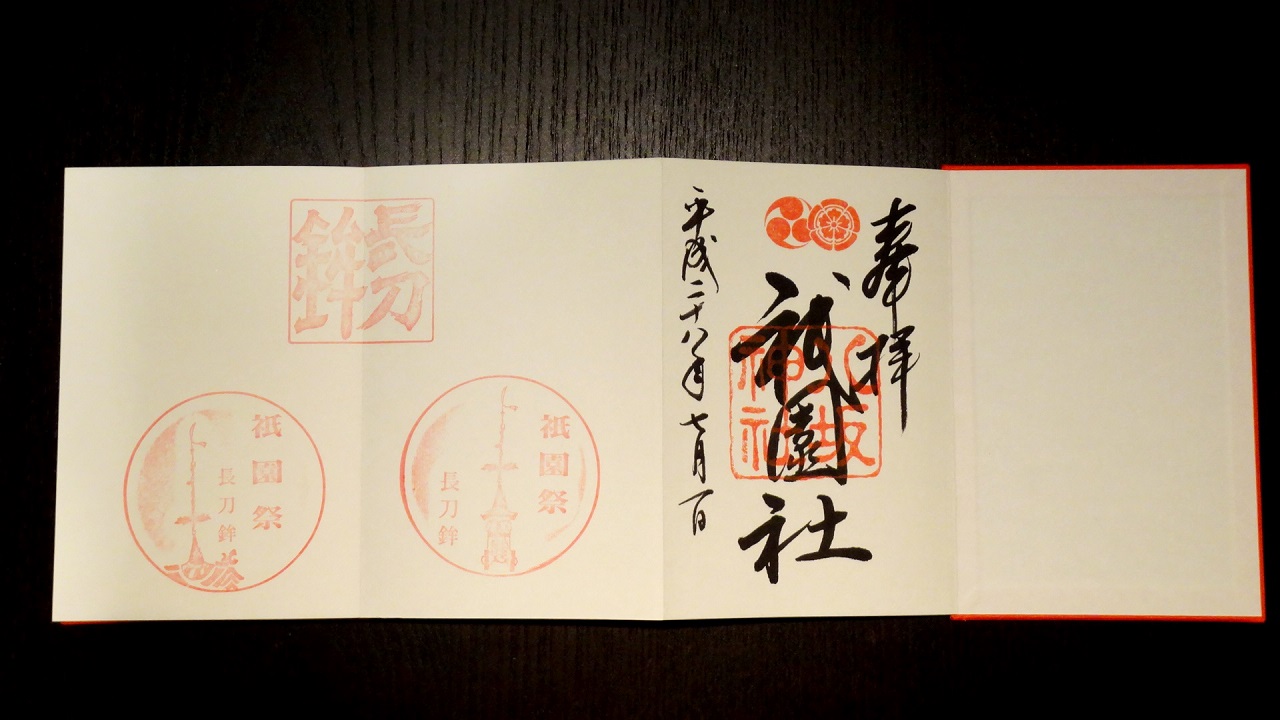 奉拝
祇園社
八坂
神社
平成二十八年七月一日
長刀
鉾
祇園祭
長刀鉾
祇園祭
長刀鉾